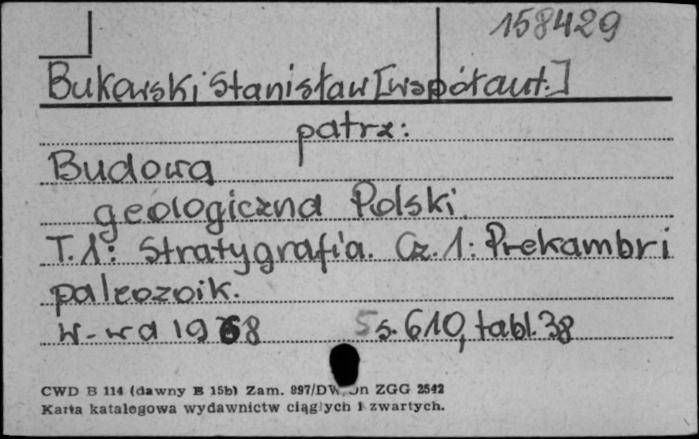 158429
Bukowski Stanisław [współaut.]
patrz:
Budowa
geologiczna Polski.
T.1: Stratygrafia. Cz.1: Prekambr i
paleozoik.
W-wa 1968 s. 610, tabl. 38
CWD B 114 (dawny B 15b) Zam. 997/DW ZGG 2542
Karta katalogowa wydawnictw ciągłych i zwartych.